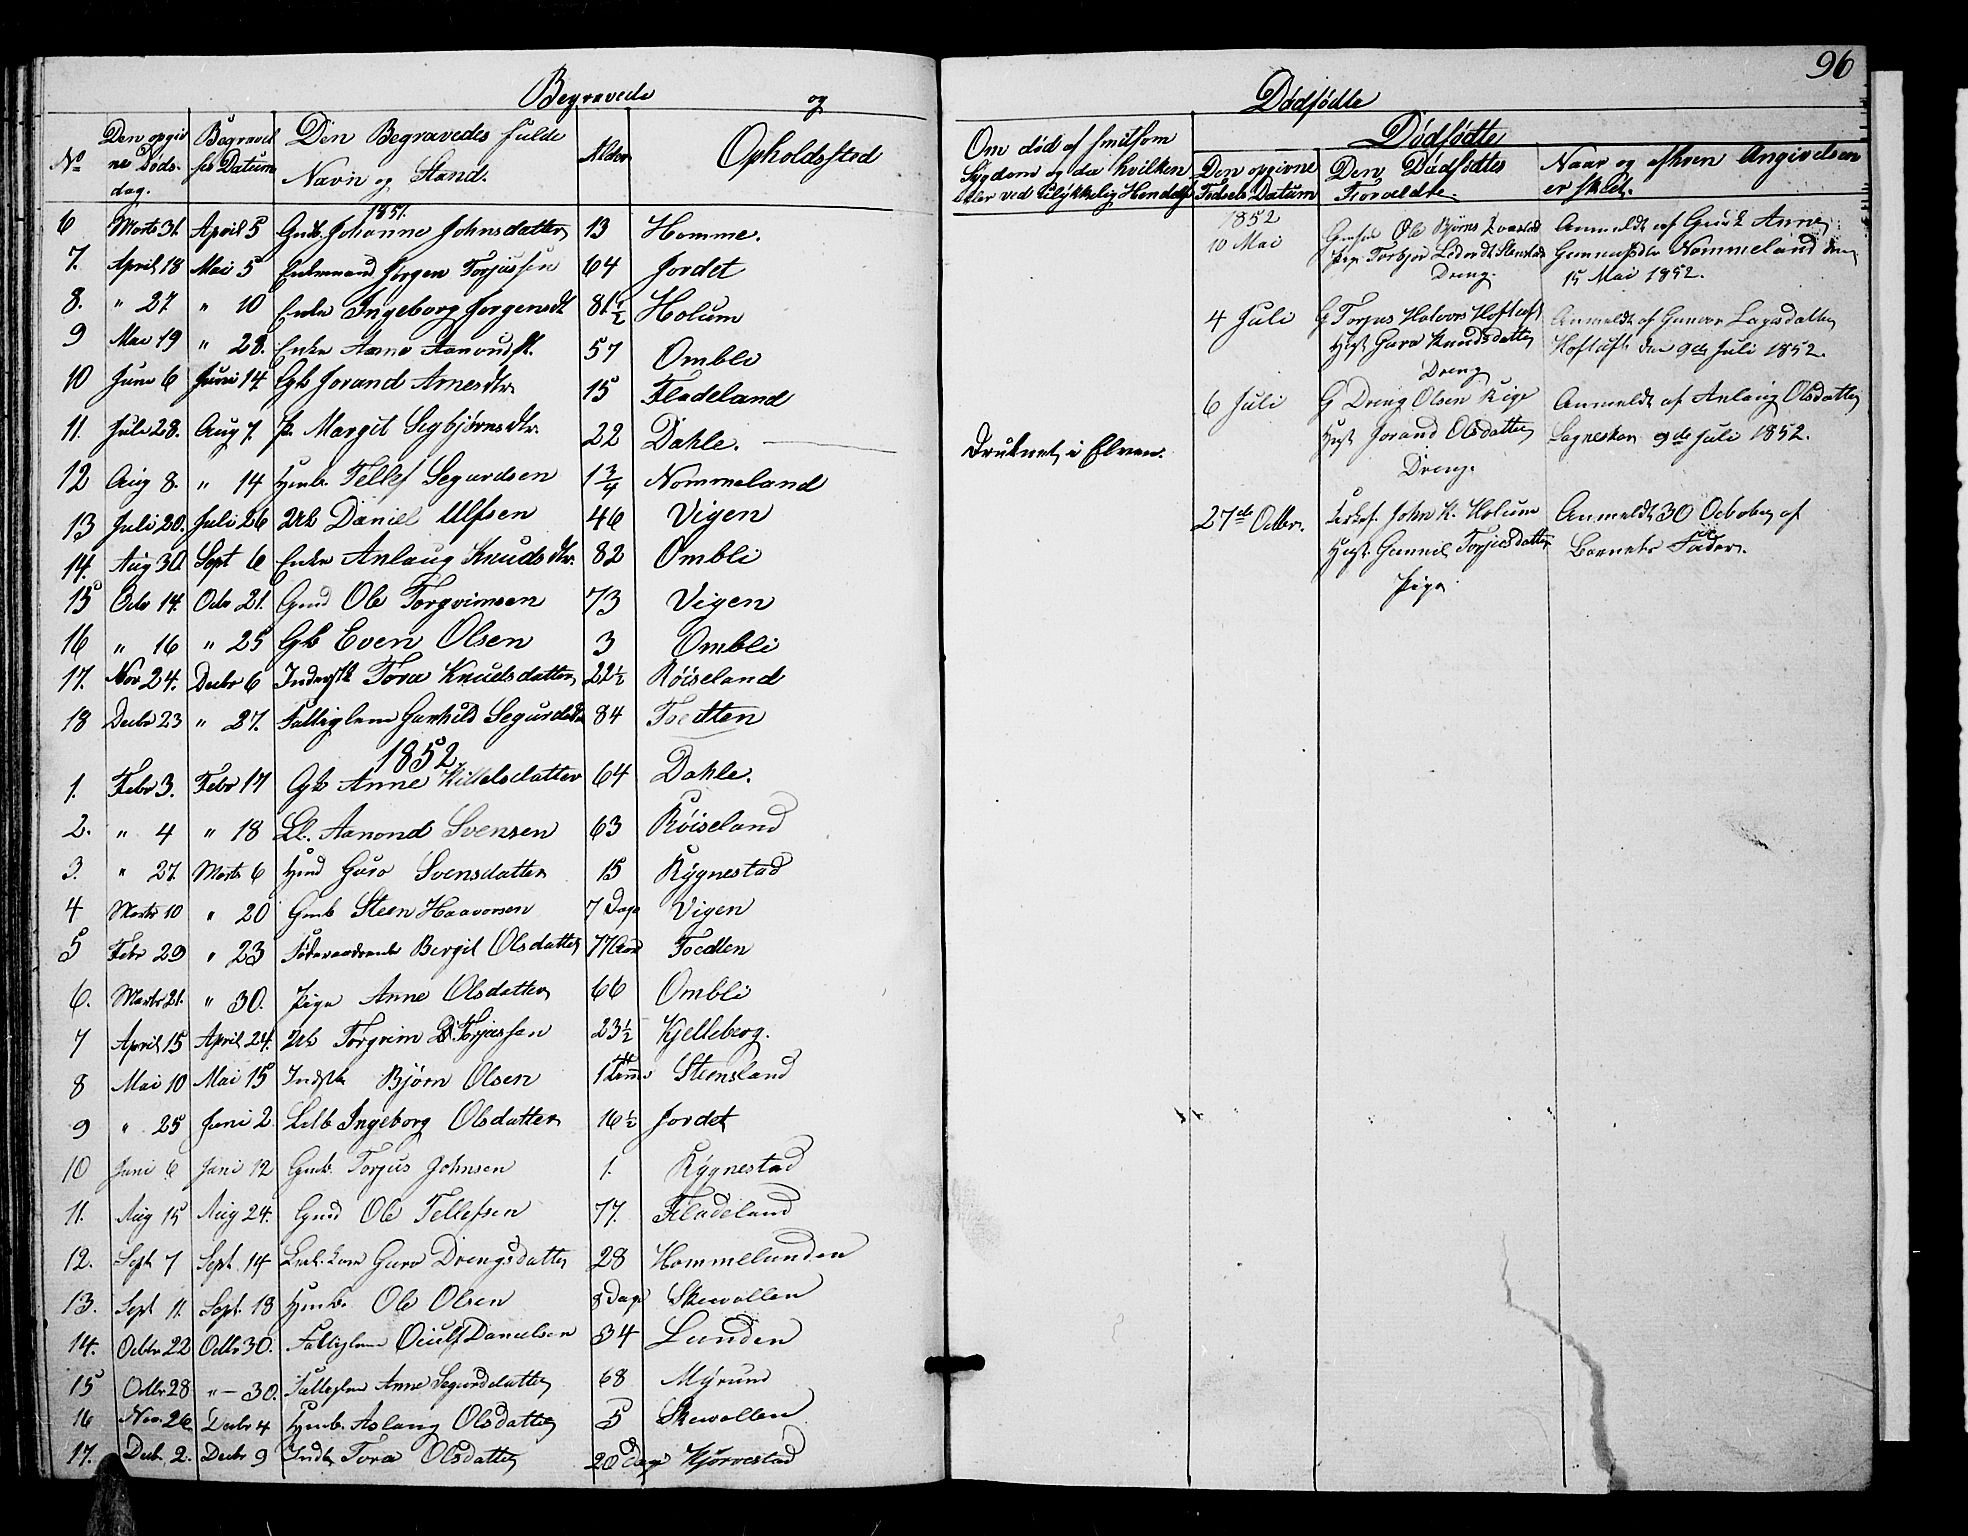 96
Begravede og Dødfødte
No
Den opgivne Dødsdag.
Begravelses Datum
Den Begravedes fulde Navn og Stand.
Alder
Opholdssted
1851.
6 Marts 31. April 5 Gmb. Johanne Johnsdatter 13 Homme.
7. April 18 Mai 5 Enkemand Jørgen Torjussen 64 Jordet
8. " 27. " 10 Enke Ingeborg Jørgensdt 81 1/2 Holum
9 Mai 19 " 28. Enke Anne Aanundsdt. 57 Ombli
10 Juni 6 Juni 14. Gb Jorand Arnesdtr. 15 Fladeland
11. Juli 28. Aug 7. P. Margit Sigbjørnsdtr. 22 Dahle.
12 Aug 8. " 14 Hmb. Tellef Segurdsen 1 3/4 Nommeland
13 Juli 20. Juli 26 Daniel Ulfsen 46 Vigen
14. Aug 30. Sept 6 Enke Anlaug Knudsdtr. 82 Ombli
15 Octr 14. Octr 21. Gmd Ole Torgrimsen 73 Vigen
16 " 16 " 25 Gb Even Olsen 3 Ombli
17. Nov 24. Decbr 6 Tora Knudsdatter 22 1/2 Røiseland
18 Decbr 23 " 27. Fattiglem Gunhild Segurdsdtr 84 Toedten
1852
1. Febr 3. Febr 17 Gb Anne Kittelsdatter 64 Dahle.
2. " 4 " 18 Ll. Aanond Svensen 63 Røiseland
3. " 27. Marts 6 Hmd Guro Svensdatter 15 Rygnestad
4 Marts 10 " 20 Gmb Steen Haavorsen 7 Dage Vigen
5 Febr 29 " 23 Bergit Olsdatter 77 Aar Toedten
6. Marts 21. " 30. Pige Anne Olsdatter 66 Ombli
7 April 15 April 24. Torgrim Torjussen 23 1/2 Kjelleberg.
8 Mai 10 Mai 15 Indstb Bjørn Olsen 1 Time Steensland
9 " 25 Juni 2. Llb Ingeborg Olsdatter 16 1/2 Jordet
10 Juni 6 Juni 12 Gmb. Torjus Johnsen 1. Rygnestad
11. Aug 15 Aug 24. Gmd Ole Tellefsen 77. Fladeland
12. Sept 7 Sept 14 Guro Drengsdatter 28 Hommelunden
13. Sept 11. Sept. 18 Hmb. Ole Olsen 8 Dage Skevollen
14. Octbr 22 Octbr 30. Fattiglem Oiulf Danielsen 34 Lunden
15 Octbr 28 " – 30. Fattiglem Anne Segurdsdatter 68 Myrund
16 Nov. 26 Decbr 4 Hmb. Aslaug Olsdatter 5 Skevollen
17. Decb. 2. Decbr 9 Indb Tora Olsdatter 20 Dage Kjørvestad
Om død af smitsom
Sygdom og da hvilken
eller ved ulykkelig Hendelse
Druknet i Elven.
Dødfødte
Den opgivne
Fødsels Datum
Den Dødfødtes
Forældre.
Naar og af hvem Angivelsen
er skeet.
1852
10 Mai
Ole Bjørns
Torbjør
Dreng.
Anmeldt af Anne
Nommeland den
15 Mai 1852.
4 Juli
G Torjus Halvors Hoftuft
Hust Guro Knudsdatter
Dreng
Anmeldt af Gunvor Lagsdatter
Hoftuft den 9de Juli 1852.
6 Juli
G Dreng Olsen Rige
Hust Jorand Olsdatter
Dreng.
Anmeldt af Anlaug Olsdatter
9de Juli 1852.
27de Octbr.
John K. Holum
Hust. Gunnil Torjusdatter
Pige
Anmeldt 30 October af
Barnets Fader.